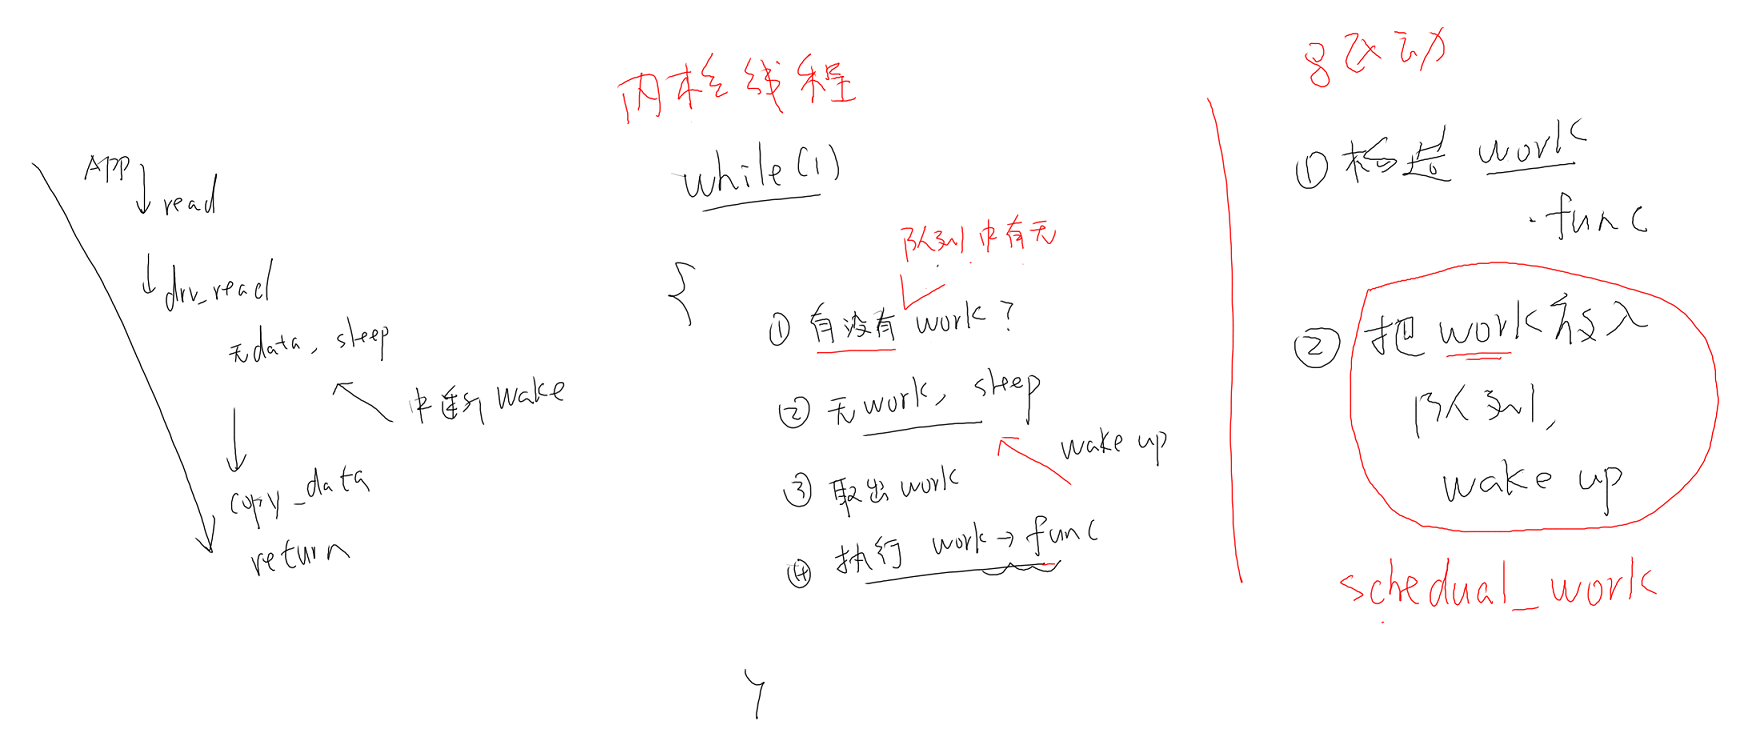 APP
read
drv_read
无data, sleep
中断 wake
copy_data
return
内核线程
while(1)
队列中有无
{
① 有没有 work?
② 无work, sleep
wake up
③ 取出work
④ 执行 work→func
}
驱动
① 构造 work
.func
② 把work放入
队列,
wake up
schedual_work